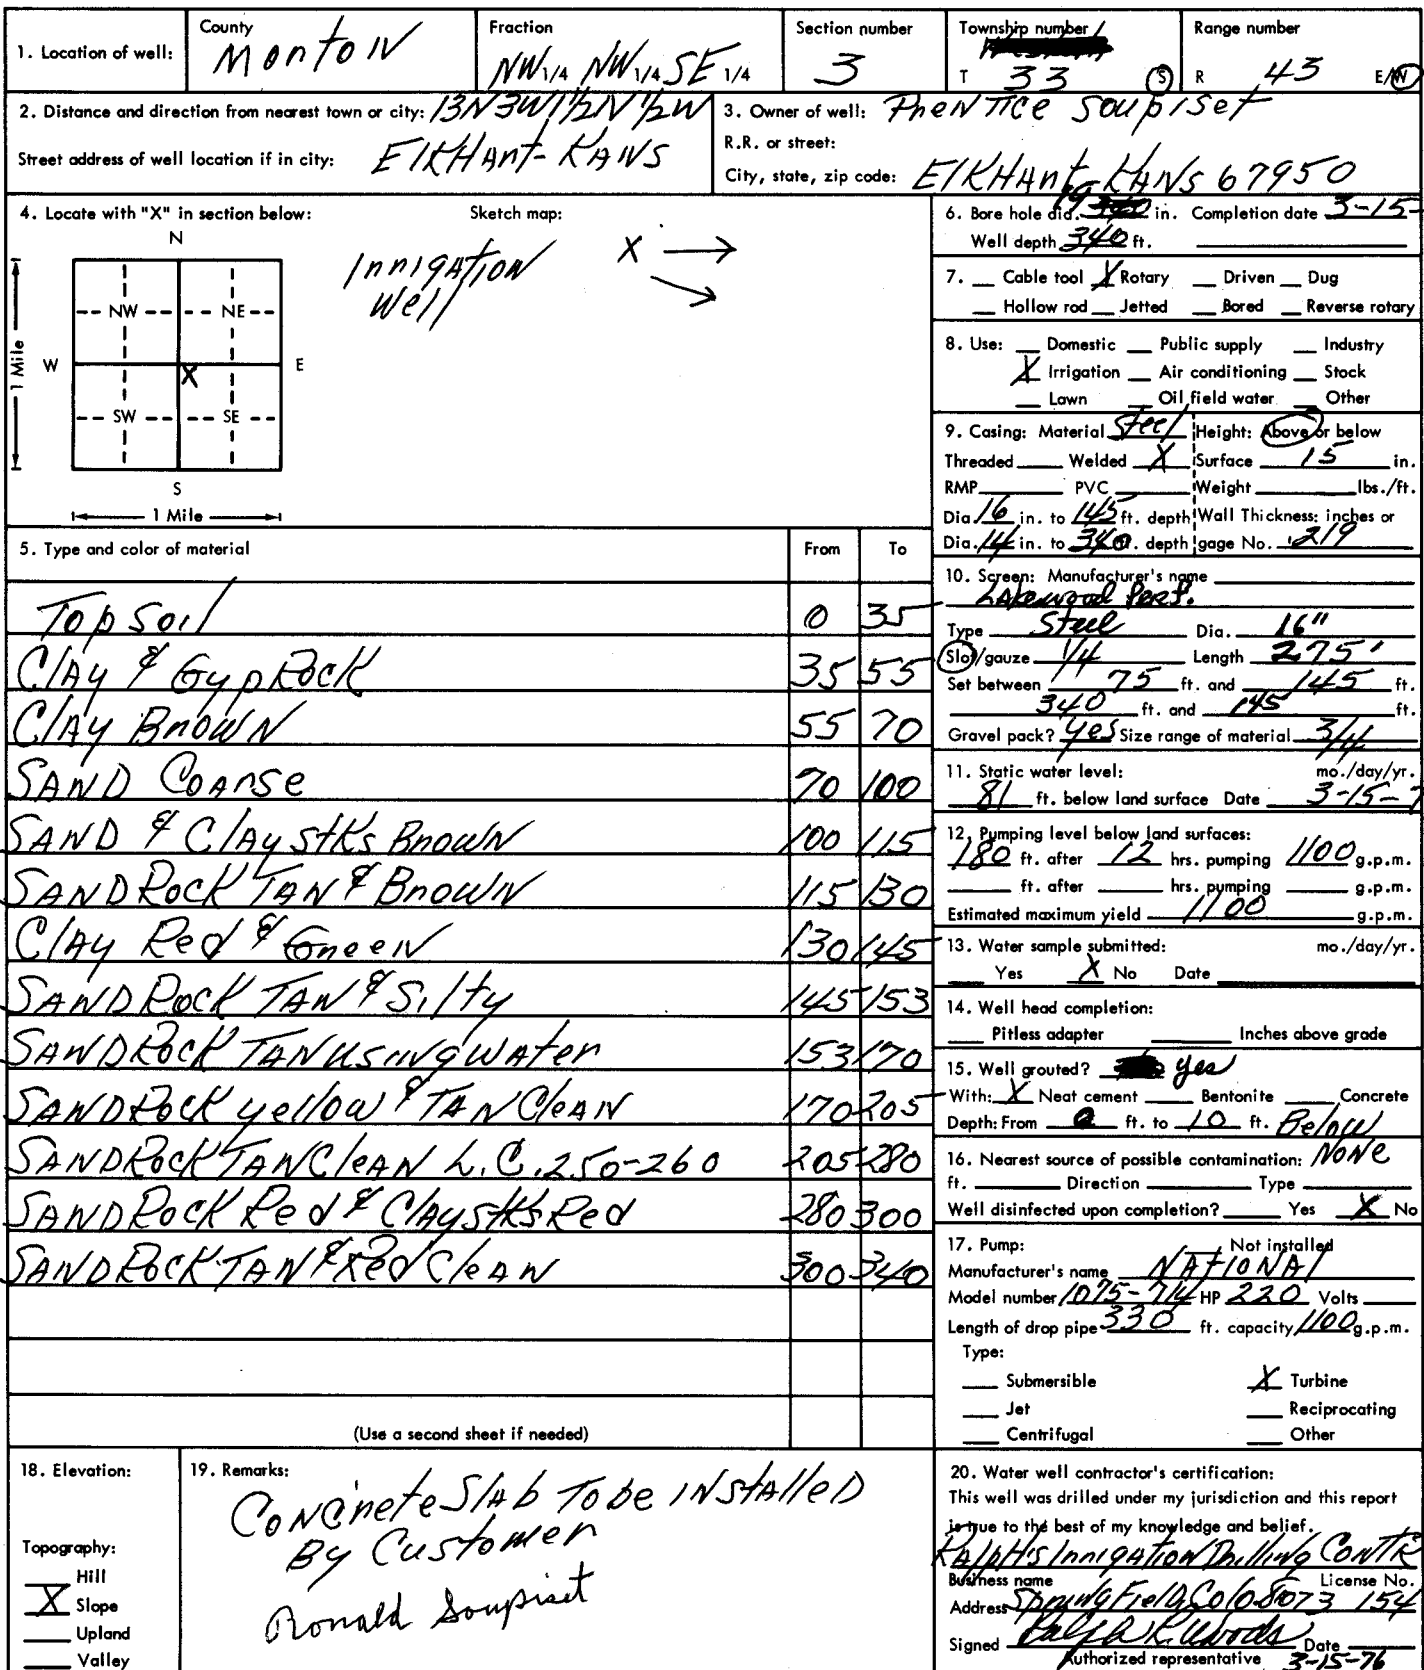 1. Location of well: County Monton Fraction NW 1/4 NW 1/4 SE 1/4 Section number 3 Township number T 33 S Range number R 43 E/W
2. Distance and direction from nearest town or city: 13N3W1½N½W
Street address of well location if in city: ElKHAnt-KANS
3. Owner of well: PhenTice Soupiset
R.R. or street:
City, state, zip code: ElKHAnt-KANS 67950
4. Locate with "X" in section below: Sketch map:
N
Innigation Well
X
NW NE
W E
X
SW SE
S
1 Mile
1 Mile
5. Type and color of material From To
Top Soil 0 35
Clay & GypRock 35 55
Clay Bnown 55 70
SAND Coanse 70 100
SAND & Clay stks Bnown 100 115
SANDRock TAN & Bnown 115 130
Clay Red & Gneen 130 145
SANDRock TAN & Silty 145 153
SANDRock TAN Using Water 153 170
SANDRock yellow & TAN CleAN 170 205
SANDRock TAN CleAN L.C. 250-260 205 280
SANDRock Red & Clay stks Red 280 300
SANDRock TAN & Red CleAN 300 340
(Use a second sheet if needed)
6. Bore hole dia. in. Completion date 3-15-
Well depth 340 ft.
7. Cable tool X Rotary Driven Dug
Hollow rod Jetted Bored Reverse rotary
8. Use: Domestic Public supply Industry
X Irrigation Air conditioning Stock
Lawn Oil field water Other
9. Casing: Material Steel Height: Above or below
Threaded Welded X Surface 15 in.
RMP PVC Weight lbs./ft.
Dia. 16 in. to 145 ft. depth Wall Thickness: inches or
Dia. 14 in. to 340 ft. depth gage No. .219
10. Screen: Manufacturer's name
Lakewood Perf.
Type Steel Dia. 16"
Slot/gauze 1/4 Length 275'
Set between 75 ft. and 145 ft.
340 ft. and 145 ft.
Gravel pack? yes Size range of material 3/4
11. Static water level: mo./day/yr.
81 ft. below land surface Date 3-15-7
12. Pumping level below land surfaces:
180 ft. after 12 hrs. pumping 1100 g.p.m.
ft. after hrs. pumping g.p.m.
Estimated maximum yield 1100 g.p.m.
13. Water sample submitted: mo./day/yr.
Yes X No Date
14. Well head completion:
Pitless adapter Inches above grade
15. Well grouted? yes
With: X Neat cement Bentonite Concrete
Depth: From 0 ft. to 10 ft. Below
16. Nearest source of possible contamination: None
ft. Direction Type
Well disinfected upon completion? Yes X No
17. Pump: Not installed
Manufacturer's name NATIONAl
Model number 1075-714 HP 220 Volts
Length of drop pipe 330 ft. capacity 1100 g.p.m.
Type:
Submersible X Turbine
Jet Reciprocating
Centrifugal Other
18. Elevation:
Topography:
Hill
X Slope
Upland
Valley
19. Remarks:
Concnete Slab To be INstAlleD
By Customer
Ronald Soupiset
20. Water well contractor's certification:
This well was drilled under my jurisdiction and this report
is true to the best of my knowledge and belief.
Ralph's Innigation Dnilling Contr
Business name License No.
Address SpningField, Colo 154
Signed Date
Authorized representative 3-15-76